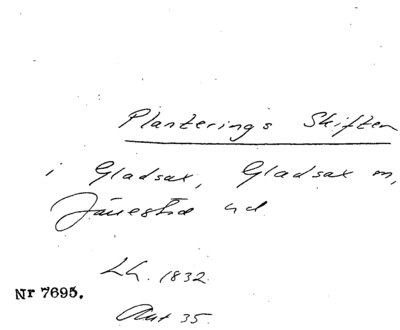 Planterings Skiften
i Gladsax, Gladsax m,
Järrestad hd
LA. 1832
Nr 7695.
Akt 35.